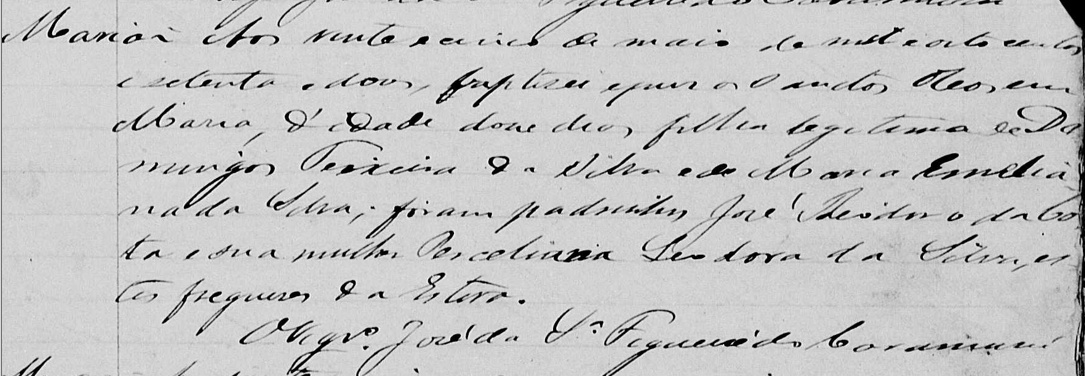 Figueiredo Caramuru
Maria Aos vinte e cinco de maio de mil e oito centos
e setenta e dous, baptisei e puz os Santos Oleos em
Maria, d'idade doze dias filha legitima de Do
mingos Teixeira da Silva e de Maria Emilia
na da Silva; foram padrinhos José Theodoro da Cos
ta e sua mulher Porceliana Leodora da Silva, es
tes freguezes da Estova.
O Vigr.º José da S.ª Figueiredo Caramurú